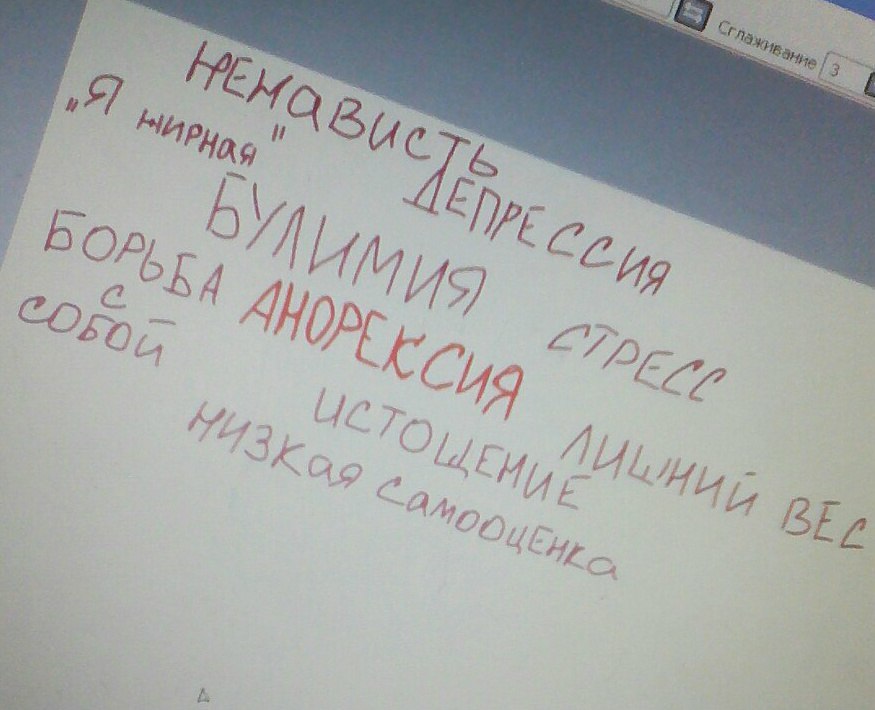 Сглаживание 3
НЕНАВИСТЬ
„Я жирная"
ДЕПРЕССИЯ
БУЛИМИЯ
БОРЬБА
С
СОБОЙ
АНОРЕКСИЯ
СТРЕСС
ИСТОЩЕНИЕ
ЛИШНИЙ ВЕС
НИЗКАЯ САМООЦЕНКА